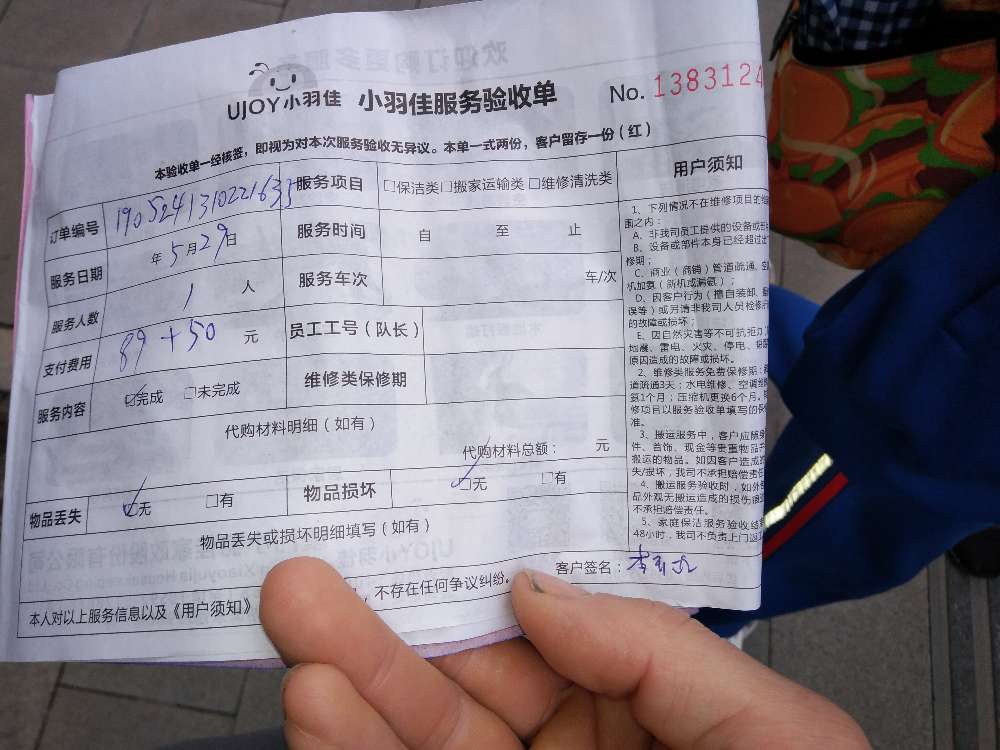 UJOY小羽佳 小羽佳服务验收单 No. 1383124
本验收单一经核签，即视为对本次服务验收无异议。本单一式两份，客户留存一份（红）
订单编号 190524131022163 服务项目 □保洁类□搬家运输类 □维修清洗类
服务日期 年5月29日 服务时间 自 至 止
服务人数 1 人 服务车次 车/次
支付费用 89+50 元 员工工号（队长）
服务内容 ☑完成 □未完成 维修类保修期
代购材料明细（如有）
代购材料总额： 元
物品丢失 ☑无 □有 物品损坏 ☑无 □有
物品丢失或损坏明细填写（如有）
本人对以上服务信息以及《用户须知》 ，不存在任何争议纠纷。 客户签名：
用户须知
1、下列情况不在维修项目的
围之内：
A、非我司员工提供的设备或
B、设备或部件本身已经超过
修期；
C、商业（商铺）管道疏通、
机加氨（新机或漏氨）；
D、因客户行为（擅自装卸、
误等）或另请非我司人员检修
的故障或损坏；
E、因自然灾害等不可抗拒
地震、雷电、火灾、停电、
原因造成的故障或损坏。
2、维修类服务免费保修期：
道疏通3天；水电维修、空调
氨1个月；压缩机更换6个月。
修项目以服务验收单填写的
准。
3、搬运服务中，客户应
件、首饰、现金等贵重物品
搬运的物品。如因客户造成
失/损坏，我司不承担赔偿责
4、搬运服务验收时，如
品外观无搬运造成的损伤
不承担赔偿责任。
5、家庭保洁服务验收
48小时，我司不负责上门